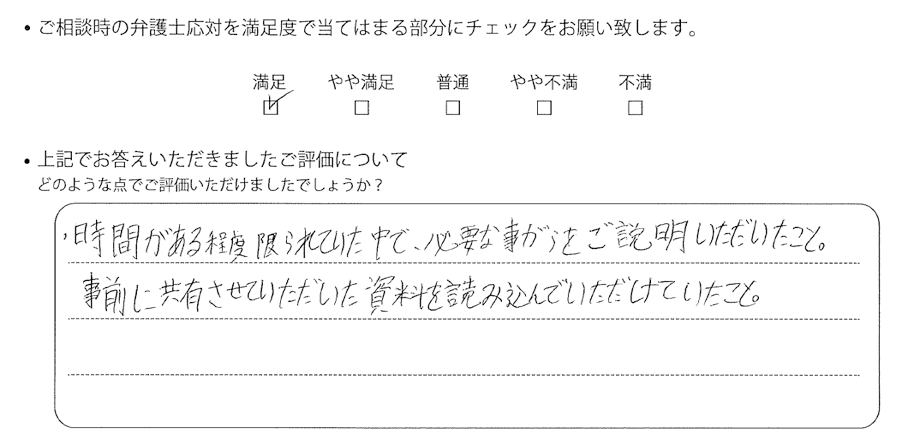 ・ご相談時の弁護士応対を満足度で当てはまる部分にチェックをお願い致します。
満足 やや満足 普通 やや不満 不満
・上記でお答えいただきましたご評価について
どのような点でご評価いただけましたでしょうか？
・時間がある程度限られていた中で、必要な事がらをご説明いただいたこと。
事前に共有させていただいた資料を読み込んでいただけていたこと。